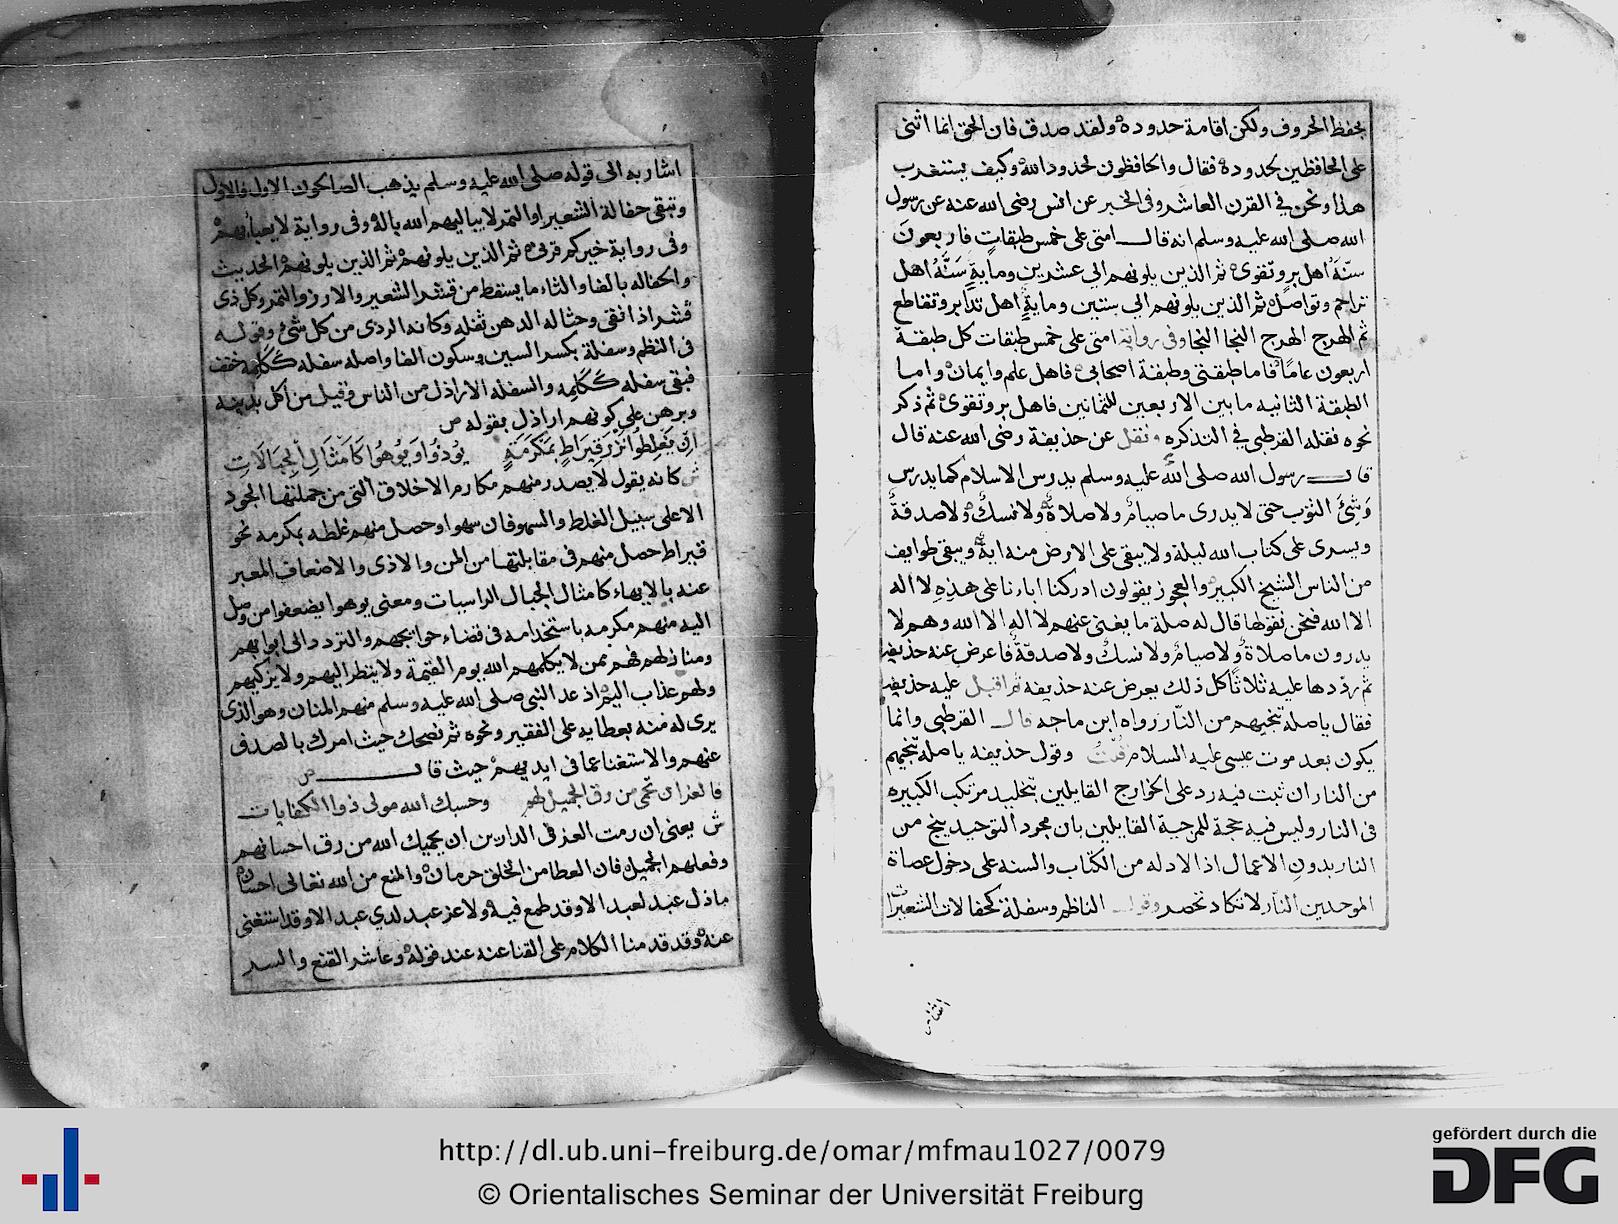 بحفظ الحروف ولكن اقامة حدوده ولقد صدق فان الحق انما اثنى
على الحافظين لحدوده فقال والحافظون لحدود الله وكيف يستغرب
هذا ونحن في القرن العاشر وفي الخبر عن انس رضى الله عنه عن رسول
الله صلى الله عليه وسلم انه قال امتى على خمس طبقات فاربعون
سنة اهل بر وتقوى ثم الذين يلونهم الى عشرين وماية سنة اهل
تراحم وتواصل ثم الذين يلونهم الى ستين وماية اهل تدابر وتقاطع
ثم الهرج الهرج النجا النجا وفى رواية امتى على خمس طبقات كل طبقة
اربعون عاما فاما طبقتى وطبقة اصحابى فاهل علم وايمان واما
الطبقة الثانيه ما بين الاربعين للثمانين فاهل بر وتقوى ثم ذكر
نحوه نقله القرطبي في التذكره ونقل عن حذيفة رضى الله عنه قال
قال رسول الله صلى الله عليه وسلم يدرس الاسلام كما يدرس
وشئ الثوب حتى لا يدرى ما صيام ولا صلاة ولا نسك ولا صدقة
ويسرى على كتاب الله ليلة ولا يبقى على الارض منه اية ويبقى طوايف
من الناس الشيخ الكبير والعجوز يقولون ادركنا اباءنا على هذه لا اله
الا الله فنحن نقولها قال له صلة ما يغنى عنهم لا اله الا الله وهم لا
يدرون ما صلاة ولا صيام ولا نسك ولا صدقة فاعرض عنه حذيفه
ثم رددها عليه ثلاثا كل ذلك يعرض عنه حذيفه ثم اقبل عليه حذيفه
فقال يا صله تنجيهم من النار رواه ابن ماجه قال القرطبي وانما
يكون بعد موت عيسى عليه السلام قلت وقول حذيفه يا صله تنجيهم
من النار ان ثبت فيه رد على الخوارج القايلين بتخليد مرتكب الكبيره
فى النار وليس فيه حجة للمرجية القايلين بان مجرد التوحيد ينج من
النار بدون الاعمال اذ الادله من الكتاب والسنه على دخول عصاة
الموحدين النار لا تكاد تحصر وقول الناظم وسفلة كحفالات الشعيرات
اشار به الى قوله صلى الله عليه وسلم يذهب الصالحون الاول فالاول
وتبقى حفالة الشعير او التمر لا يباليهم الله باله وفى رواية لا يعبأ بهم
وفى رواية خيركم قرنى ثم الذين يلونهم ثم الذين يلونهم الحديث
والحفاله بالفا والثاء ما يسقط من قشر الشعير والارز والتمر وكل ذى
قشر اذا نقى وحثاله الدهن ثفله وكانه الردى من كل شئ وقوله
فى النظم وسفلة بكسر السين وسكون الفا واصله سفله ككلمه خفف
فبقى سفله ككلمه والسفله الاراذل من الناس وقيل من اكل بدينه
وبرهن على كونهم اراذل بقوله ص
ان يغلطوا نزر قيراط بمكرمة يوذوا ويوهوا كامثال الجبالات
ش كانه يقول لا يصدر منهم مكارم الاخلاق التى من جملتها الجود
الا على سبيل الغلط والسهو فان سهوا وحصل منهم غلطه بمكرمه نحو
قيراط حصل منهم فى مقابلتها من المن والاذى والاضعاف المعبر
عنه بالايهاء كامثال الجبال الراسيات ومعنى يوهوا يضعفوا من وصل
اليه منهم مكرمه باستخدامه فى قضاء حوايجهم والتردد الى ابوابهم
ومنازلهم فهم ممن لا يكلمهم الله يوم القيمة ولا ينظر اليهم ولا يزكيهم
ولهم عذاب اليم اذ عد النبى صلى الله عليه وسلم منهم المنان وهو الذى
يرى له منه بعطايه على الفقير ونحوه ثم نصحك حيث امرك بالصدف
عنهم والاستغنا عما فى ايديهم حيث قال ص
فالعز ان تحمى من رق الجميل لهم وحسبك الله مولى ذو الكفايات
ش يعنى ان رمت العز فى الدارين ان يحميك الله من رق احسانهم
وفعلهم الجميل فان العطا من الخلق حرمان والمنع من الله تعالى احسان
ما ذل عبد لعبد الا وقد طمع فيه ولا عز عبد لدي عبد الا وقد استغنى
عنه وقد قدمنا الكلام على القناعنه عند قوله وعاشر القنع والسر
http://dl.ub.uni-freiburg.de/omar/mfmau1027/0079
© Orientalisches Seminar der Universität Freiburg
gefördert durch die
DFG